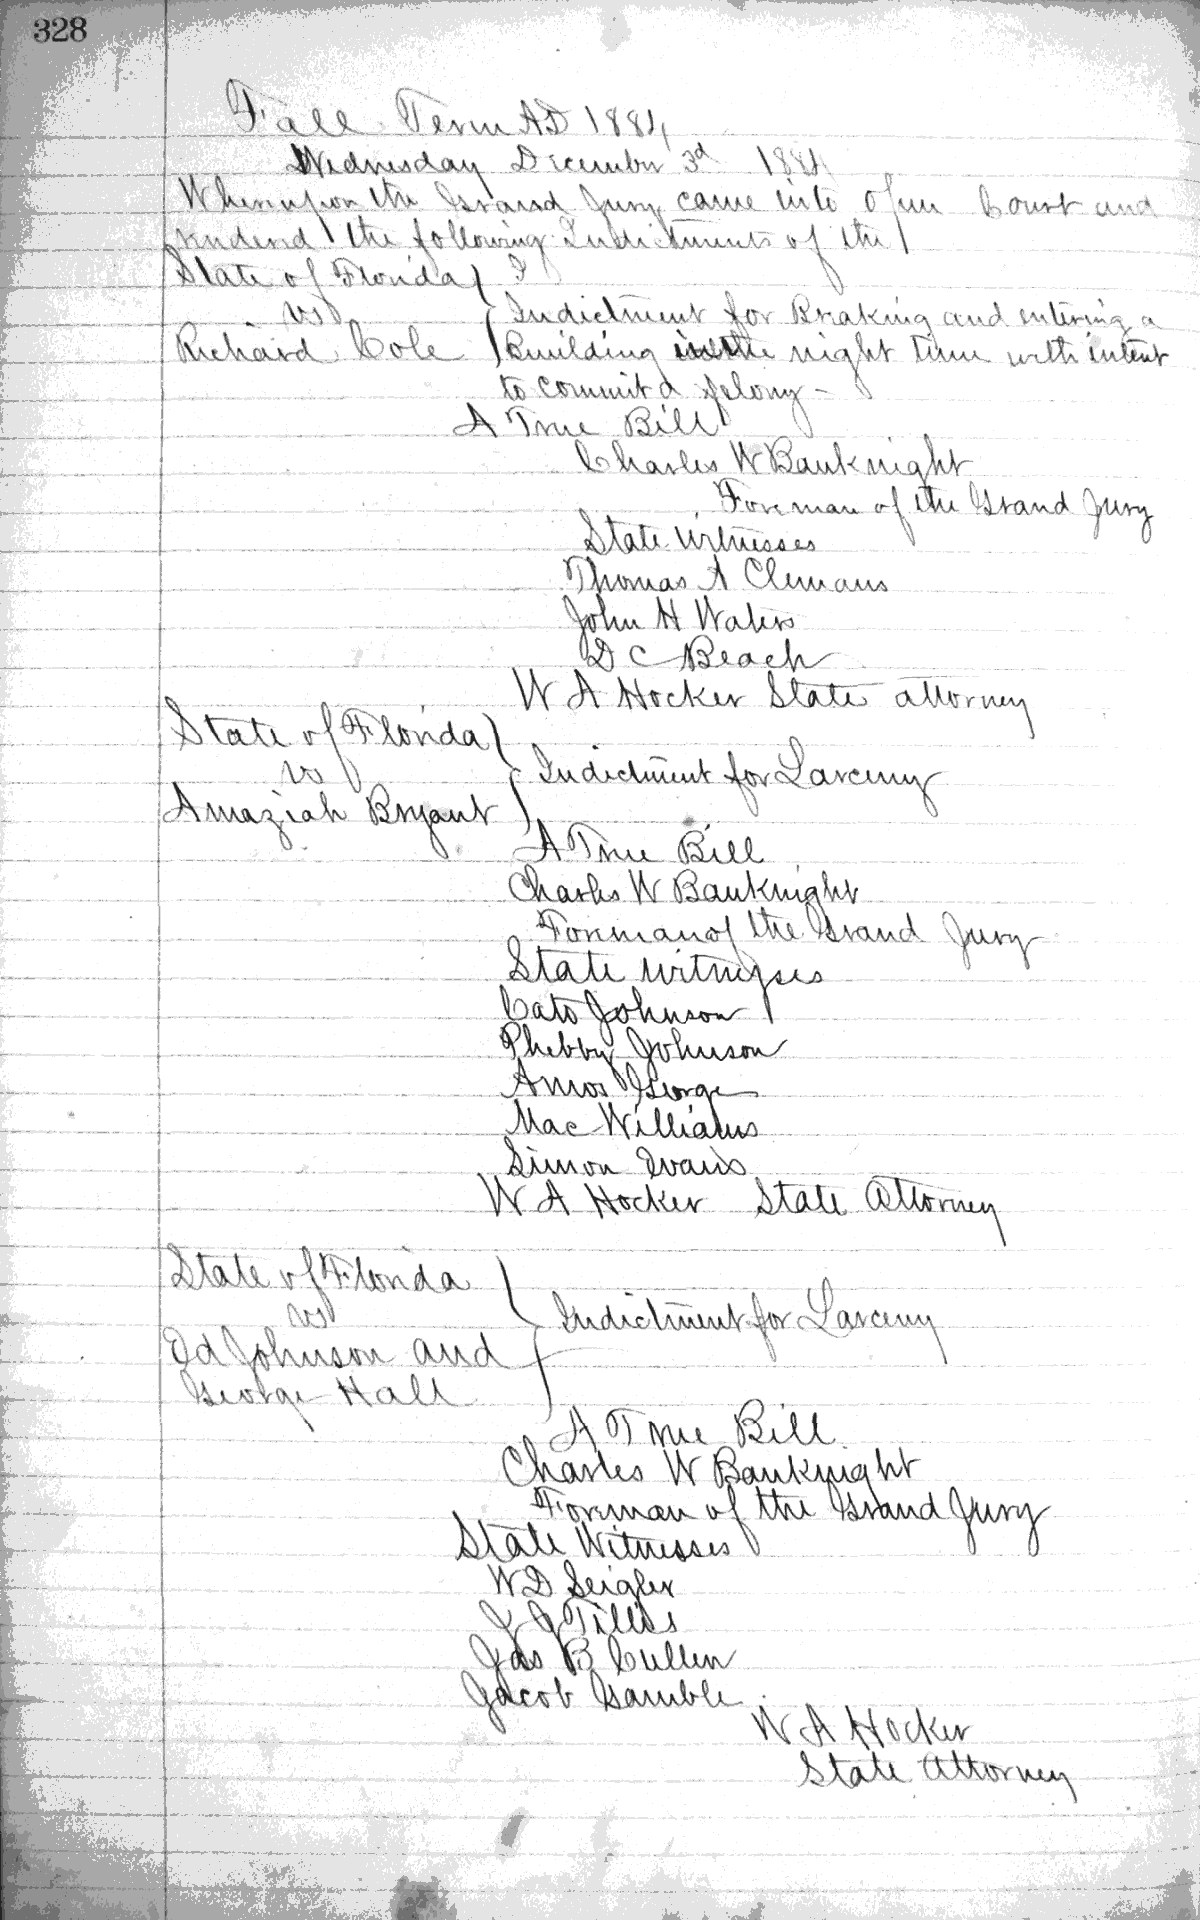 328
Fall Term AD 1884
Wednesday December 3d 1884
Whereupon the Grand Jury came into Open Court and
rendered the following Indictments of the
State of Florida
vs
Indictment for Braking and entering a
Richard Cole Building in the night time with intent
to commit a felony -
A True Bill
Charles W Bauknight
Foreman of the Grand Jury
State Witnesses
Thomas A Clemans
John H Waters
D C Beach
W A Hocker State attorney
State of Florida
vs Indictment for Larceny
Amaziah Bryant
A True Bill
Charles W Bauknight
Foreman of the Grand Jury
State witnesses
Cato Johnson
Phebby Johnson
Amos George
Mac Williams
Simon Evans
W A Hocker State Attorney
State of Florida
vs Indictment for Larceny
Ed Johnson and
George Hall
A True Bill
Charles W Bauknight
Foreman of the Grand Jury
State Witnesses
W D Seigler
J J Tillis
Jas B Cullen
Jacob Gamble
W A Hocker
State Attorney